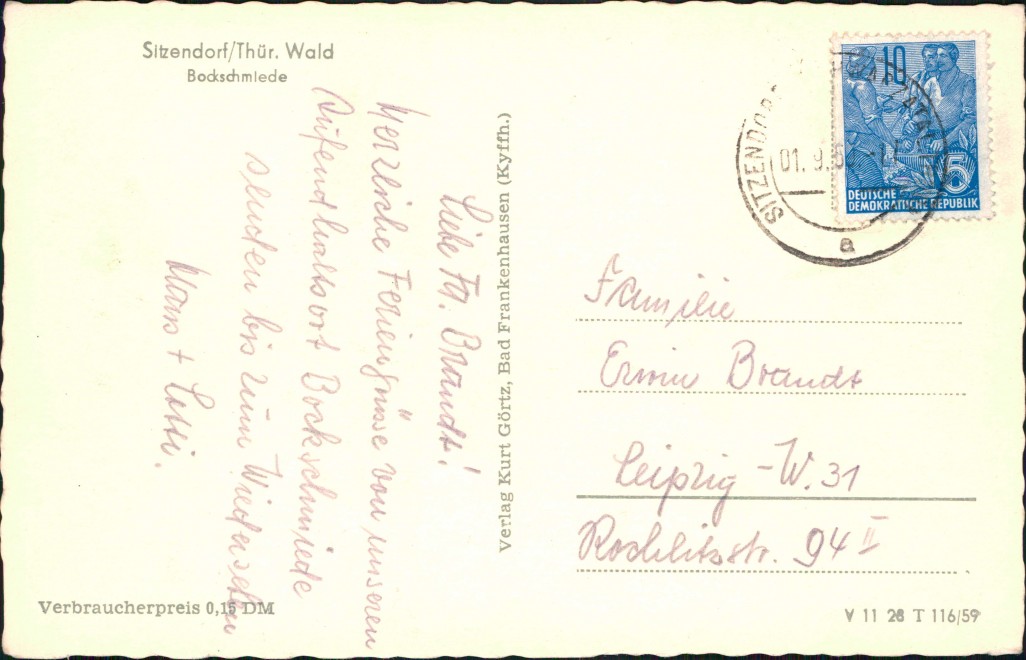 Sitzendorf/Thür. Wald
Bockschmiede
Liebe Fa. Brandt!
Herzliche Feriengrüsse von unseren
Aufendhaltsort Bockschmiede
senden bis zum Wiedersehen
Hans + Lotti.
Verlag Kurt Görtz, Bad Frankenhausen (Kyffh.)
Verbraucherpreis 0,15 DM
10
5
DEUTSCHE
DEMOKRATISCHE REPUBLIK
SITZENDORF
01. 9. 6
a
Familie
Erwin Brandt
Leipzig - W. 31
Rochlitzstr. 94 II
V 11 28 T 116/59